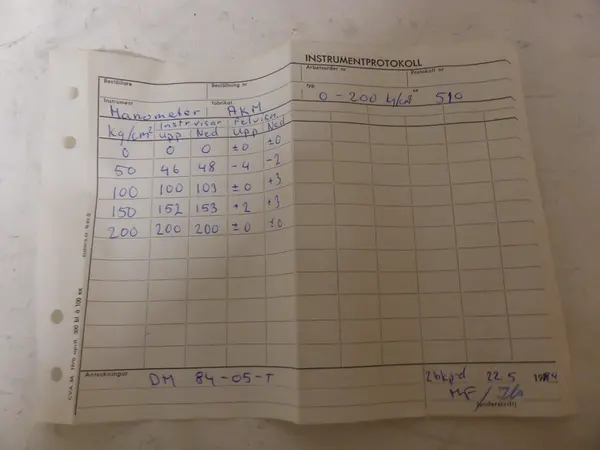 INSTRUMENTPROTOKOLL
Beställare
Beställning nr
Arbetsorder nr
Protokoll nr
Instrument
Fabrikat
Typ
Manometer AKM 0-200 kg/cm² 510
kg/cm² Instr.visar Felvisn
upp Ned Upp Ned
0 0 0 ±0 ±0
50 46 48 -4 -2
100 100 103 ±0 +3
150 152 153 +2 +3
200 200 200 ±0 ±0
Anmärkningar
DM 84-05-T
22.5 1984
Underskrift